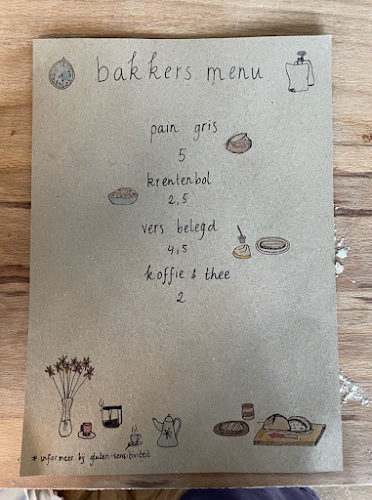 bakkers menu
pain gris
5
krentenbol
2,5
vers belegd
4,5
koffie & thee
2
* informeer bij gluten-sensitiviteit